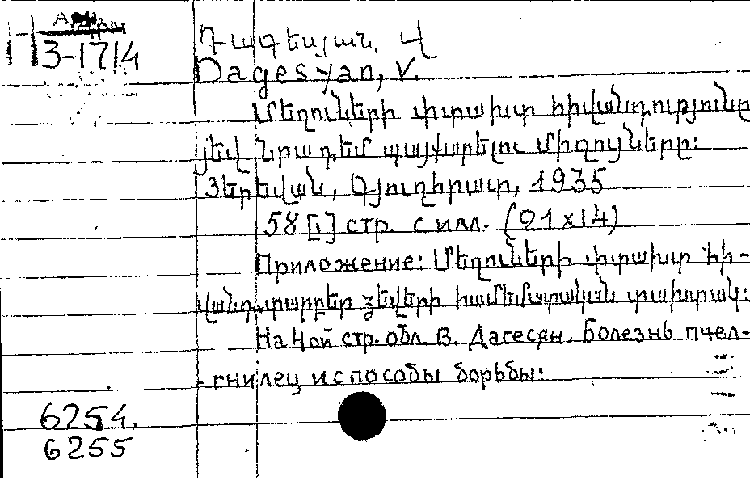 3-1714
Դագեսյան, Վ
Dagesyan, V.
Մեղուների փտախտ հիվանդությունը
յեվ նրա դեմ պայքարելու միջոցները:
Յերեվան, Գյուղհրատ, 1935
58 [1] стр. с илл. (21x14)
Приложение: Մեղուների փտախտ հի-
վանդ. տարբեր ձևերի համեմատական տախտակ:
На 4ой стр. обл. В. Дагесян. Болезнь пчел-
-гнилец и способы борьбы:
6254.
6255